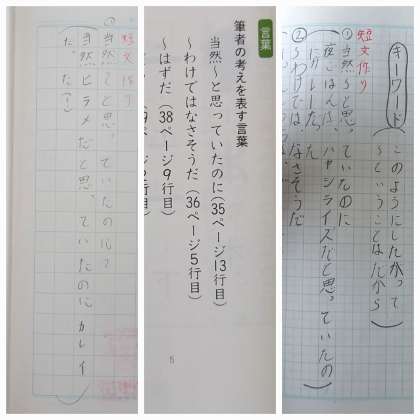 キーワード
このようにしたがって
〜ということはだから
短文作り
①当然〜と思っていたのに
夜ごはんはハヤシライスだと思っていたの
②〜わけではなさそうだ
言葉
筆者の考えを表す言葉
当然〜と思っていたのに（35ページ13行目）
〜わけではなさそうだ（36ページ5行目）
〜はずだ（38ページ9行目）
5
短文作
①当然〜と思っていたのに
当然ヒラメだと思っていたのにカレイ
だった（！）